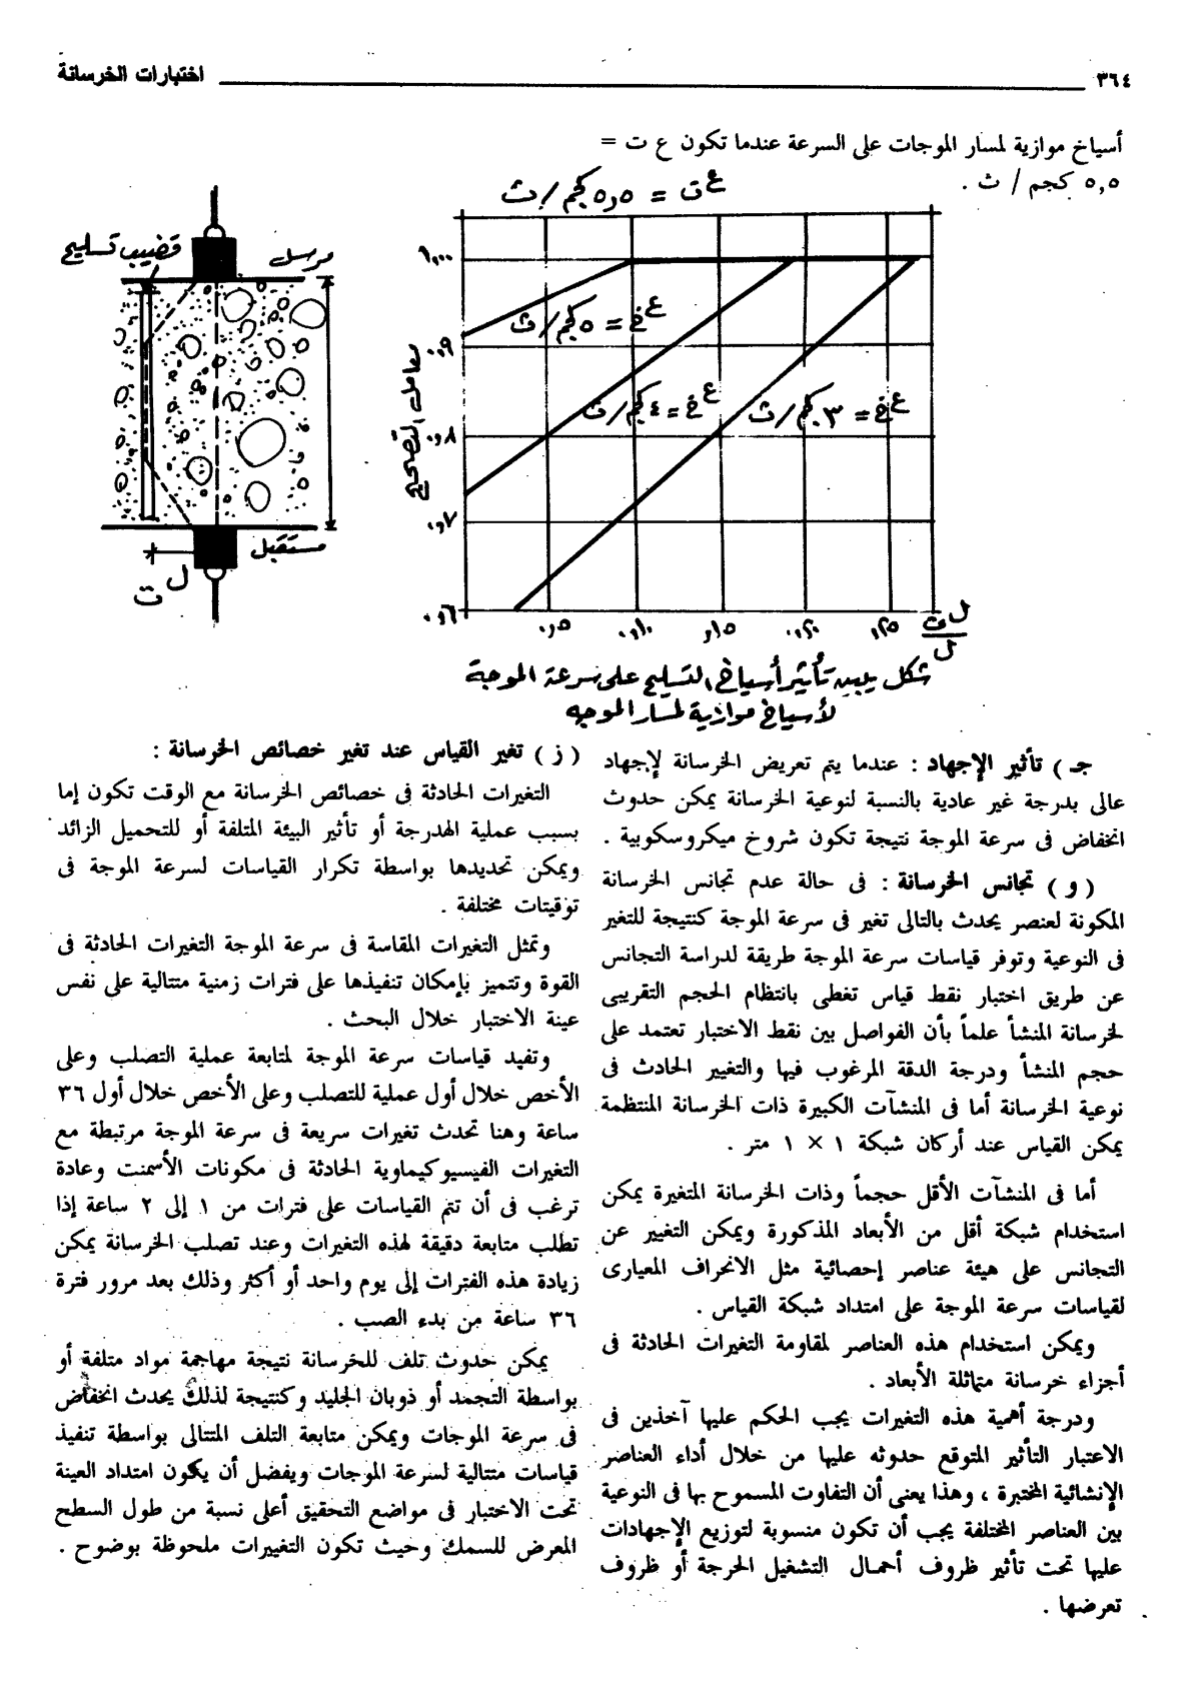 ٣٦٤
اختبارات الخرسانة
أسياخ موازية لمسار الموجات على السرعة عندما تكون ع ت =
٥,٥ كجم / ث .
ع ت = ٥,٥ كجم/ث
قضيب تسليح
مرسل
مستقبل
ل ت
معامل التصحيح
١,٠٠
٠,٩
٠,٨
٠,٧
٠,٦
ع خ = ٥ كجم/ث
ع خ = ٤ كجم/ث
ع خ = ٣ كجم/ث
٠,٠٥
٠,١٠
٠,١٥
٠,٢٠
٠,٢٥
ل ت
ل
شكل يبين تأثير أسياخ التسليح على سرعة الموجة
لأسياخ موازية لمسار الموجه
جـ ) تأثير الإجهاد : عندما يتم تعريض الخرسانة لإجهاد
عالى بدرجة غير عادية بالنسبة لنوعية الخرسانة يمكن حدوث
انخفاض فى سرعة الموجة نتيجة تكون شروخ ميكروسكوبية .
( و ) تجانس الخرسانة : فى حالة عدم تجانس الخرسانة
المكونة لعنصر يحدث بالتالى تغير فى سرعة الموجة كنتيجة للتغير
فى النوعية وتوفر قياسات سرعة الموجة طريقة لدراسة التجانس
عن طريق اختبار نقط قياس تغطى بانتظام الحجم التقريبى
لخرسانة المنشأ علماً بأن الفواصل بين نقط الاختبار تعتمد على
حجم المنشأ ودرجة الدقة المرغوب فيها والتغيير الحادث فى
نوعية الخرسانة أما فى المنشآت الكبيرة ذات الخرسانة المنتظمة
يمكن القياس عند أركان شبكة ١ × ١ متر .
أما فى المنشآت الأقل حجماً وذات الخرسانة المتغيرة يمكن
استخدام شبكة أقل من الأبعاد المذكورة ويمكن التغيير عن
التجانس على هيئة عناصر إحصائية مثل الانحراف المعيارى
لقياسات سرعة الموجة على امتداد شبكة القياس .
ويمكن استخدام هذه العناصر لمقاومة التغيرات الحادثة فى
أجزاء خرسانة متماثلة الأبعاد .
ودرجة أهمية هذه التغيرات يجب الحكم عليها آخذين فى
الاعتبار التأثير المتوقع حدوثه عليها من خلال أداء العناصر
الإنشائية المختبرة ، وهذا يعنى أن التفاوت المسموح بها فى النوعية
بين العناصر المختلفة يجب أن تكون منسوبة لتوزيع الإجهادات
عليها تحت تأثير ظروف أحمال التشغيل الحرجة أو ظروف
تعرضها .
( ز ) تغير القياس عند تغير خصائص الخرسانة :
التغيرات الحادثة فى خصائص الخرسانة مع الوقت تكون إما
بسبب عملية الهدرجة أو تأثير البيئة المتلفة أو للتحميل الزائد
ويمكن تحديدها بواسطة تكرار القياسات لسرعة الموجة فى
توقيتات مختلفة .
وتمثل التغيرات المقاسة فى سرعة الموجة التغيرات الحادثة فى
القوة وتتميز بإمكان تنفيذها على فترات زمنية متتالية على نفس
عينة الاختبار خلال البحث .
وتفيد قياسات سرعة الموجة لمتابعة عملية التصلب وعلى
الأخص خلال أول عملية للتصلب وعلى الأخص خلال أول ٣٦
ساعة وهنا تحدث تغيرات سريعة فى سرعة الموجة مرتبطة مع
التغيرات الفيسيوكيماوية الحادثة فى مكونات الأسمنت وعادة
ترغب فى أن تتم القياسات على فترات من ١ إلى ٢ ساعة إذا
تطلب متابعة دقيقة لهذه التغيرات وعند تصلب الخرسانة يمكن
زيادة هذه الفترات إلى يوم واحد أو أكثر وذلك بعد مرور فترة
٣٦ ساعة من بدء الصب .
يمكن حدوث تلف للخرسانة نتيجة مهاجمة مواد متلفة أو
بواسطة التجمد أو ذوبان الجليد وكنتيجة لذلك يحدث انخفاض
فى سرعة الموجات ويمكن متابعة التلف المتتالى بواسطة تنفيذ
قياسات متتالية لسرعة الموجات ويفضل أن يكون امتداد العينة
تحت الاختبار فى مواضع التحقيق أعلى نسبة من طول السطح
المعرض للسمك وحيث تكون التغييرات ملحوظة بوضوح .